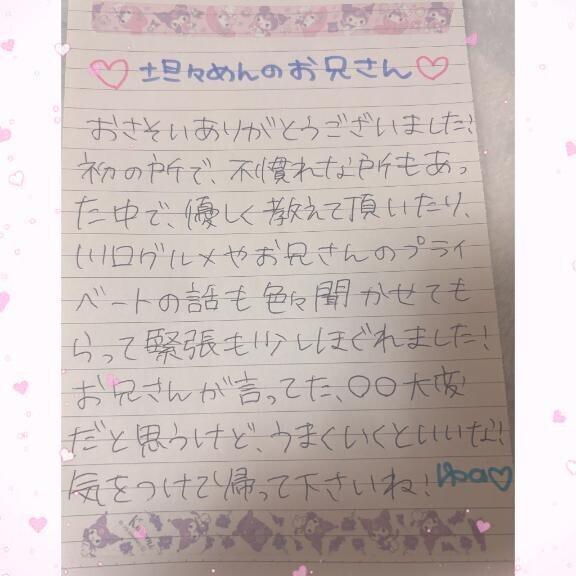 坦々めんのお兄さん
おさそいありがとうございました!
初の所で、不慣れな所もあっ
た中で、優しく教えて頂いたり、
川口グルメやお兄さんのプライ
ベートの話も色々聞かせても
らって緊張も少しほぐれました!
お兄さんが言ってた、〇〇大変
だと思うけど、うまくいくといいな!
気をつけて帰って下さいね!